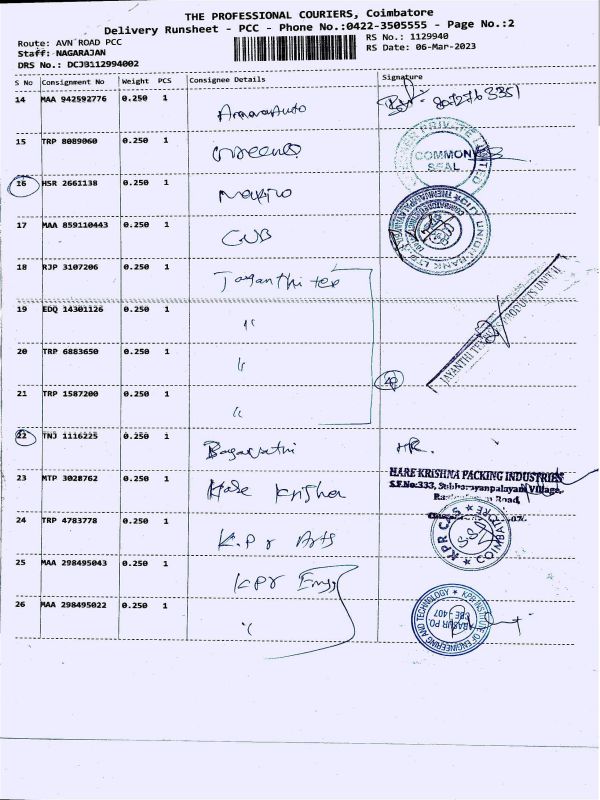 THE PROFESSIONAL COURIERS, Coimbatore
Delivery Runsheet - PCC - Phone No.:0422-3505555 - Page No.:2
Route: AVN ROAD PCC
RS No.: 1129940
Staff: NAGARAJAN
RS Date: 06-Mar-2023
DRS No.: DCJB112994002
S No Consignment No Weight PCS Consignee Details Signature
14 MAA 942592776 0.250 1
15 TRP 8089060 0.250 1
COMMON SEAL
16 HSR 2661138 0.250 1
17 MAA 859110443 0.250 1 CUB
CITY UNION BANK LTD
18 RJP 3107206 0.250 1 Jayanthi tex
19 EDQ 14301126 0.250 1 "
20 TRP 6883650 0.250 1 "
21 TRP 1587200 0.250 1 "
22 TNJ 1116225 0.250 1
23 MTP 3028762 0.250 1 Hare Krishna
HARE KRISHNA PACKING INDUSTRIES
S.F.No:333, Subbarayanpalayam Village,
Road,
24 TRP 4783778 0.250 1 K.P r Arts
KPR CAS ★ COIMBATORE ★
25 MAA 298495043 0.250 1 KPr Engg
26 MAA 298495022 0.250 1 "
KPR INSTITUTE OF ENGINEERING AND TECHNOLOGY ★
ARASUR PO.
CBE - 407